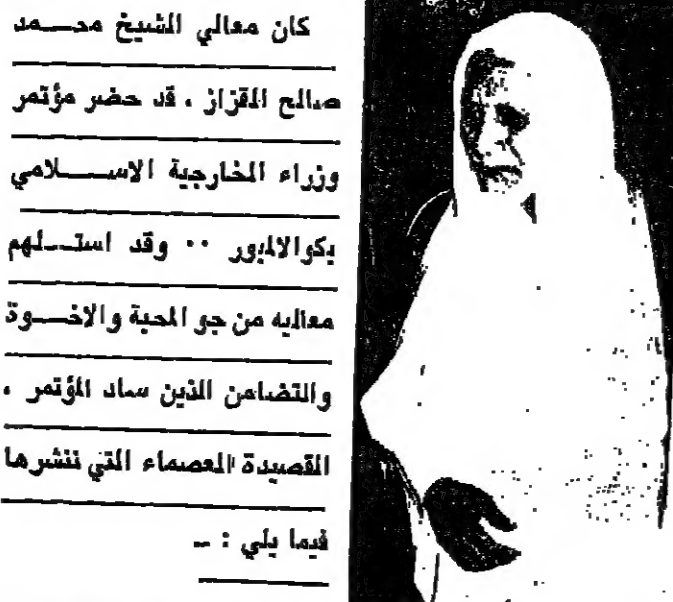 كان معالي الشيخ محمد
صالح القزاز ، قد حضر مؤتمر
وزراء الخارجية الاسلامي
بكوالالمبور ٠٠ وقد استلهم
معاليه من جو المحبة والاخوة
والتضامن الذين ساد المؤتمر ،
القصيدة العصماء التي ننشرها
فيما يلي : ــ